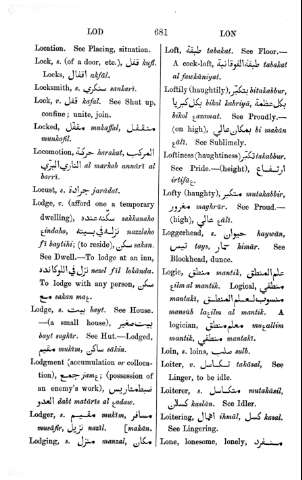 LOD 681 LON
Location. See Placing, situation.
Lock, s. (of a door, etc.), قفل kufl.
Locks, اقفال akfāl.
Locksmith, s. سنكري sankari.
Lock, v. قفل kafal. See Shut up,
confine; unite, join.
Locked, مقفل mukaffal, منقفل
munkafil.
Locomotion, حركة harakat,
al markab annāri al
barri.
Locust, s. جرادة jarādat.
Lodge, v. (afford one a temporary
dwelling), سكنه عنده sakkanaho
نزله في بيته nazzalaho
fi baytihi; (to reside), سكن sakan.
See Dwell.—To lodge at an inn,
نزل في اللوكانده nezel fil lokānda.
To lodge with any person, سكن
مع sakan ma
Lodge, s. بيت bayt. See House.
—(a small house), بيت صغير
bayt sughīr. See Hut.—Lodged,
مقيم mukīm, ساكن sākin.
Lodgment (accumulation or colloca-
tion), جمع; (possession of
an enemy's work), ضبط متاريس
العدو dabt matārīs al
Lodger, s. مقيم mukīm, مسافر
musāfir, نزيل nazīl. [makān.
Lodging, s. منزل manzal, مكان
Loft, طبقة tabakat. See Floor.—
A cock-loft, طبقة الفوقانية tabakat
al fawkāniyat.
Loftily (haughtily), بتكبر bitakabbur,
بكل كبريا bikol kabriyā,
بكل عظمة bikol. See Proudly.—
(on high), بمكان عالي bi makān
See Sublimely.
Loftiness (haughtiness) تكبر takabbur.
See Pride.—(height), ارتفاع
Lofty (haughty), متكبر mutakabbir,
مغرور maghrūr. See Proud.—
(high), عالي
Loggerhead, s. حيوان haywān,
تيس tays, حمار himār. See
Blockhead, dunce.
Logic, منطق mantik, علم المنطق
al mantik. Logical, منطقي
mantaki, منسوب لعلم المنطق
mansūb al mantik. A
logician, معلم منطق
mantik, منطقي mantaki.
Loin, s. loins, صلب sulb.
Loiter, v. تكاسل takāsal. See
Linger, to be idle.
Loiterer, s. متكاسل mutakāsil,
كسلان kaslān. See Idler.
Loitering, اهمال ihmāl, كسل kasal.
See Lingering.
Lone, lonesome, lonely, منفرد